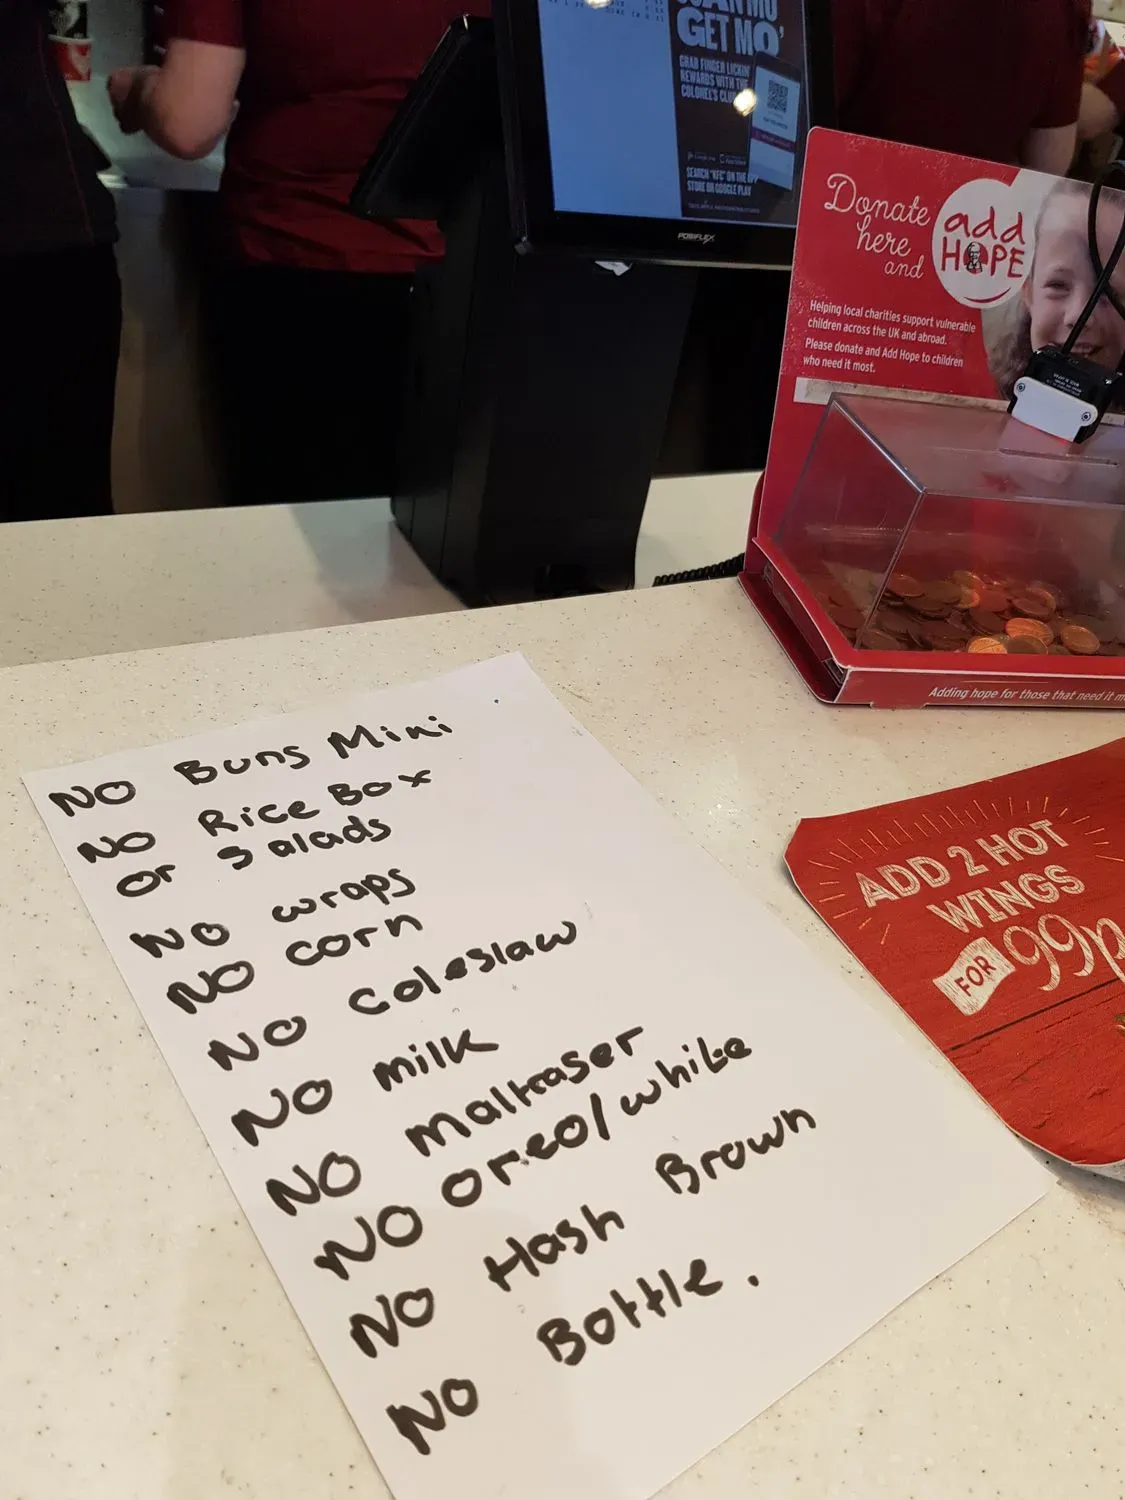 GET MO'
GRAB FINGER LICKIN'
REWARDS WITH THE
COLONEL'S CLUB
SEARCH "KFC" ON THE
STORE OR GOOGLE PLAY
POSIFLEX
Donate
here
and
add
HOPE
Helping local charities support vulnerable
children across the UK and abroad.
Please donate and Add Hope to children
who need it most.
Adding hope for those that need it
NO Buns Mini
NO Rice Box
or Salads
NO wraps
NO corn
NO coleslaw
NO milk
NO maltraser
NO oreo/white
NO Hash Brown
NO Bottle.
ADD 2 HOT
WINGS
FOR 99p